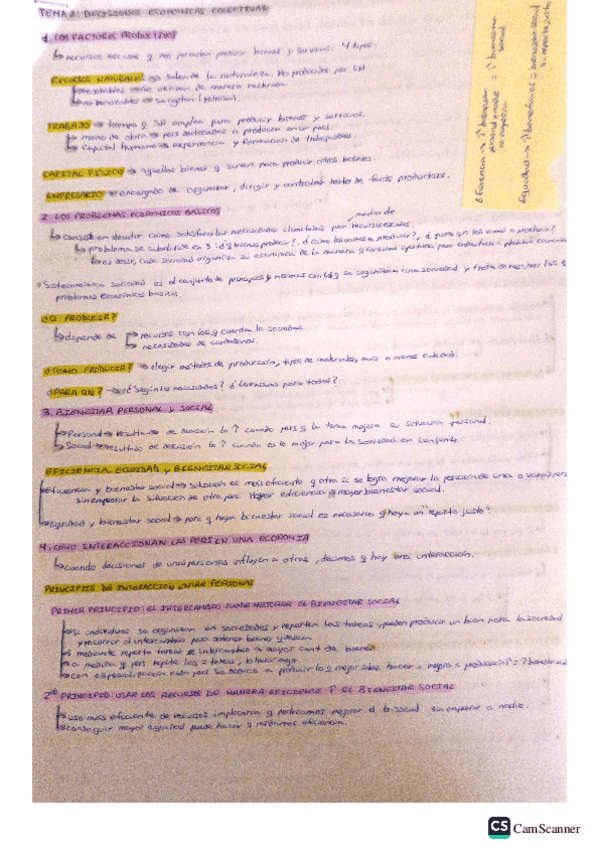 TEMA 2: DECISIONES ECONÓMICAS COLECTIVAS
1. LOS FACTORES PRODUCTIVOS
recursos q nos permiten producir bienes y servicios. 4 tipos:
RECURSOS NATURALES salen de la naturaleza. No producidos por SH
renovables se utilizan de manera
no renovables se agotan (petróleo)
TRABAJO → tiempo q SH emplea para producir bienes y servicios.
mano de obra → pers dedicadas a producir en un país.
capital humano → experiencia y formación de trabajadores
CAPITAL FÍSICO → aquellos bienes q sirven para producir otros bienes.
EMPRESARIO → encargado de organizar, dirigir y controlar resto de facts productivos.
2. LOS PROBLEMAS ECONÓMICOS BÁSICOS
consiste en decidir como satisfacer las necesidades ilimitadas por medio de recursos escasos.
problema se subdivide en 3: ¿q bienes producir?, ¿cómo
es decir, cada sociedad organiza su economía de la manera q
sociedad es el conjunto de principios y normas con los q se organiza una sociedad y trata de resolver los 3
problemas económicos básicos.
¿Q PRODUCIR?
depende de
recursos con los q cuenta la sociedad.
necesidades de ciudadanos.
¿CÓMO PRODUCIR? → elegir métodos de producción, tipos de materiales, más o menos calidad.
¿PARA QN? → ¿Según las necesidades? ¿Lo mismo para todos?
3. BIENESTAR PERSONAL Y SOCIAL
Personal → resultado de decisión la ↑ cuando pers q la toma mejora su situación personal.
Social → resultado de decisión la ↑ cuando es lo mejor para la sociedad en conjunto.
EFICIENCIA, EQUIDAD Y BIENESTAR SOCIAL
Eficiencia y bienestar social → situación es más eficiente q otra si se logra mejorar la posición de una o varias pers
sin empeorar la situación de otra pers. Mayor eficiencia → mayor bienestar social.
Equidad y bienestar social → para q haya bienestar social es necesario q haya un "reparto justo".
4. COMO INTERACCIONAN LAS PERS EN UNA ECONOMÍA
cuando decisiones de unas personas influyen a otras, decimos q hay una interacción.
PRINCIPIOS DE INTERACCIÓN ENTRE PERSONAS
PRIMER PRINCIPIO: EL INTERCAMBIO PUEDE MEJORAR EL BIENESTAR SOCIAL
si individuos se organizan en sociedades y reparten las tareas, pueden producir un bien para la sociedad
y recurrir al intercambio para obtener bienes q desean.
mediante reparto tareas e intercambio → mayor cant de bienes
a medida q pers repite las tareas, lo hará mejor
con especialización cada pers se dedica a producir lo q mejor sabe hacer
2º PRINCIPIO: USAR LOS RECURSOS DE MANERA EFICIENTE ↑ EL BIENESTAR SOCIAL
uso más eficiente de recursos implicaría q podríamos mejorar el b.social sin empeorar a nadie.
conseguir mayor equidad puede hacer q perdamos eficiencia.
Eficiencia → ↑ bienestar personal = ↑ bienestar social
Equidad → ↑ beneficios = bienestar social si reparto justo
CS CamScanner